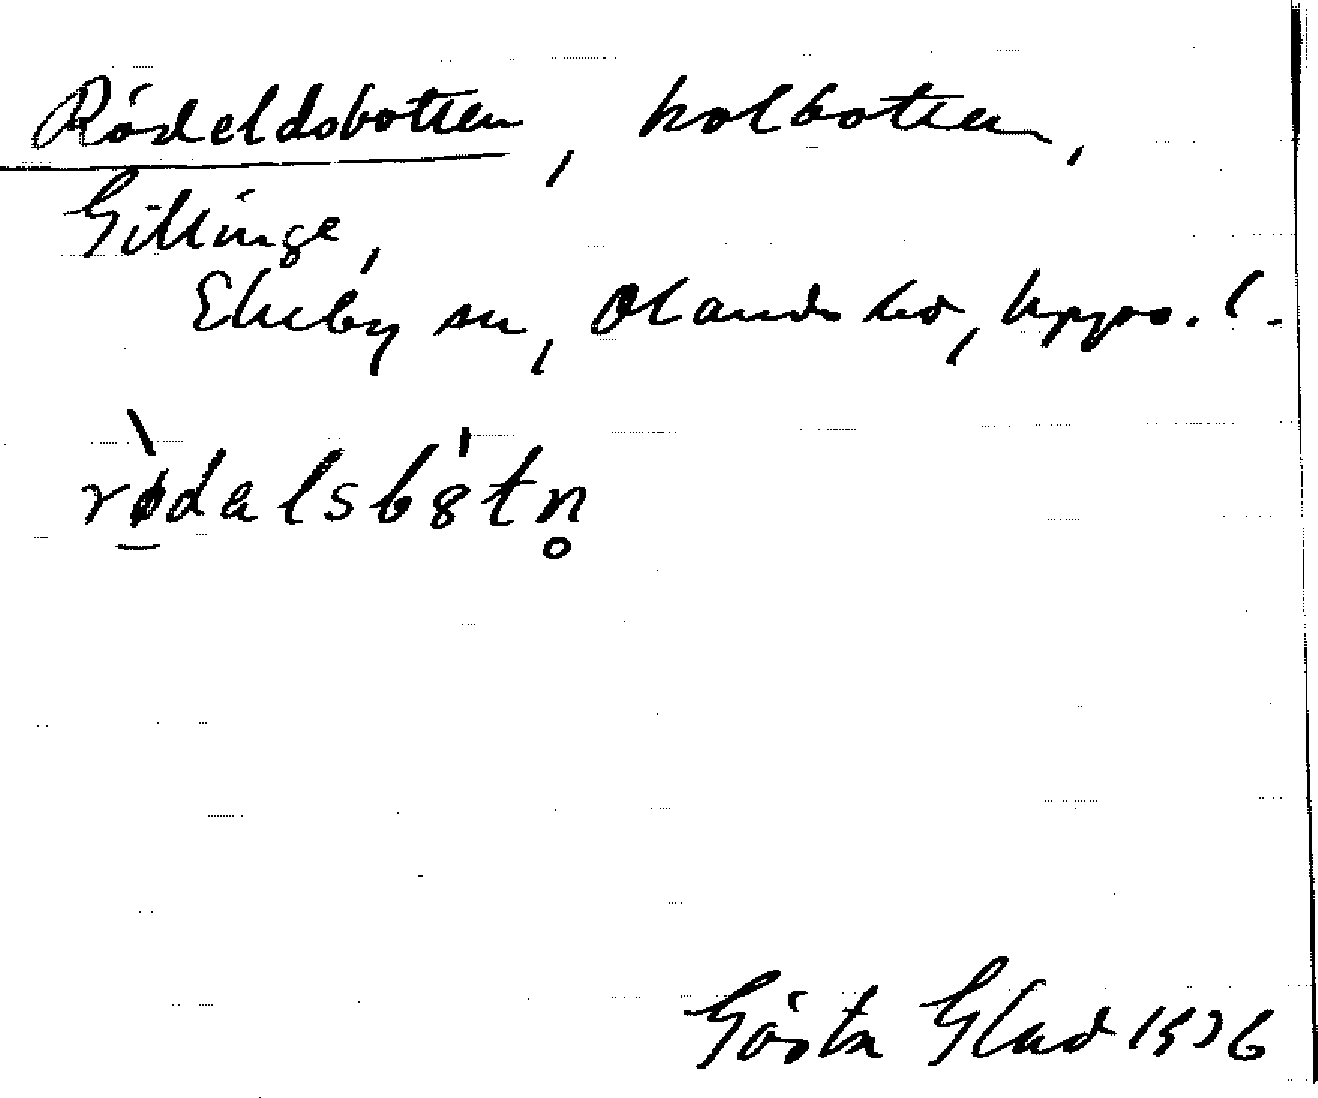 Rödeldsbotten, kolbotten,
Gillinge,
Ekeby sn, Olands hd, Upps. l.
rødalsbȣtn̥
Gösta Glad 1936